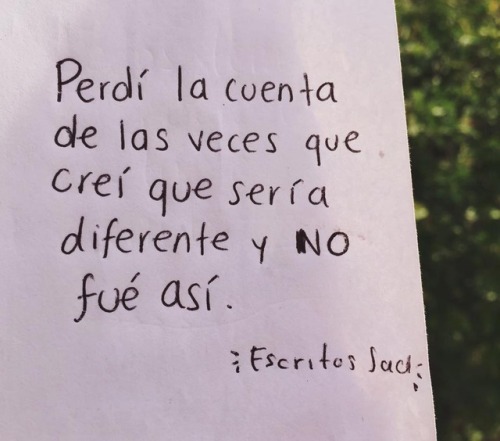 Perdí la cuenta
de las veces que
creí que sería
diferente y NO
fué así.
¡Escritos Sad¡